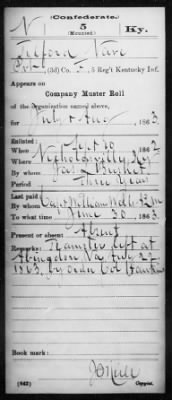 (Confederate.)
N 5 Ky.
(Mounted)
Telford Nave
Pvt, (3d) Co. F, 5 Reg't Kentucky Inf.
Appears on
Company Muster Roll
of the organization named above,
for July & Aug, 1863.
Enlisted:
When Sept 20, 1862
Where Nicholasville, Ky
By whom
Period Three Years
Last paid:
By whom Capt William
To what time June 30, 1863.
Present or absent Absent
Remarks: left at
Abingdon Va July 22
1863, by order Col Hawkins
Book mark:
(642) Copyist.